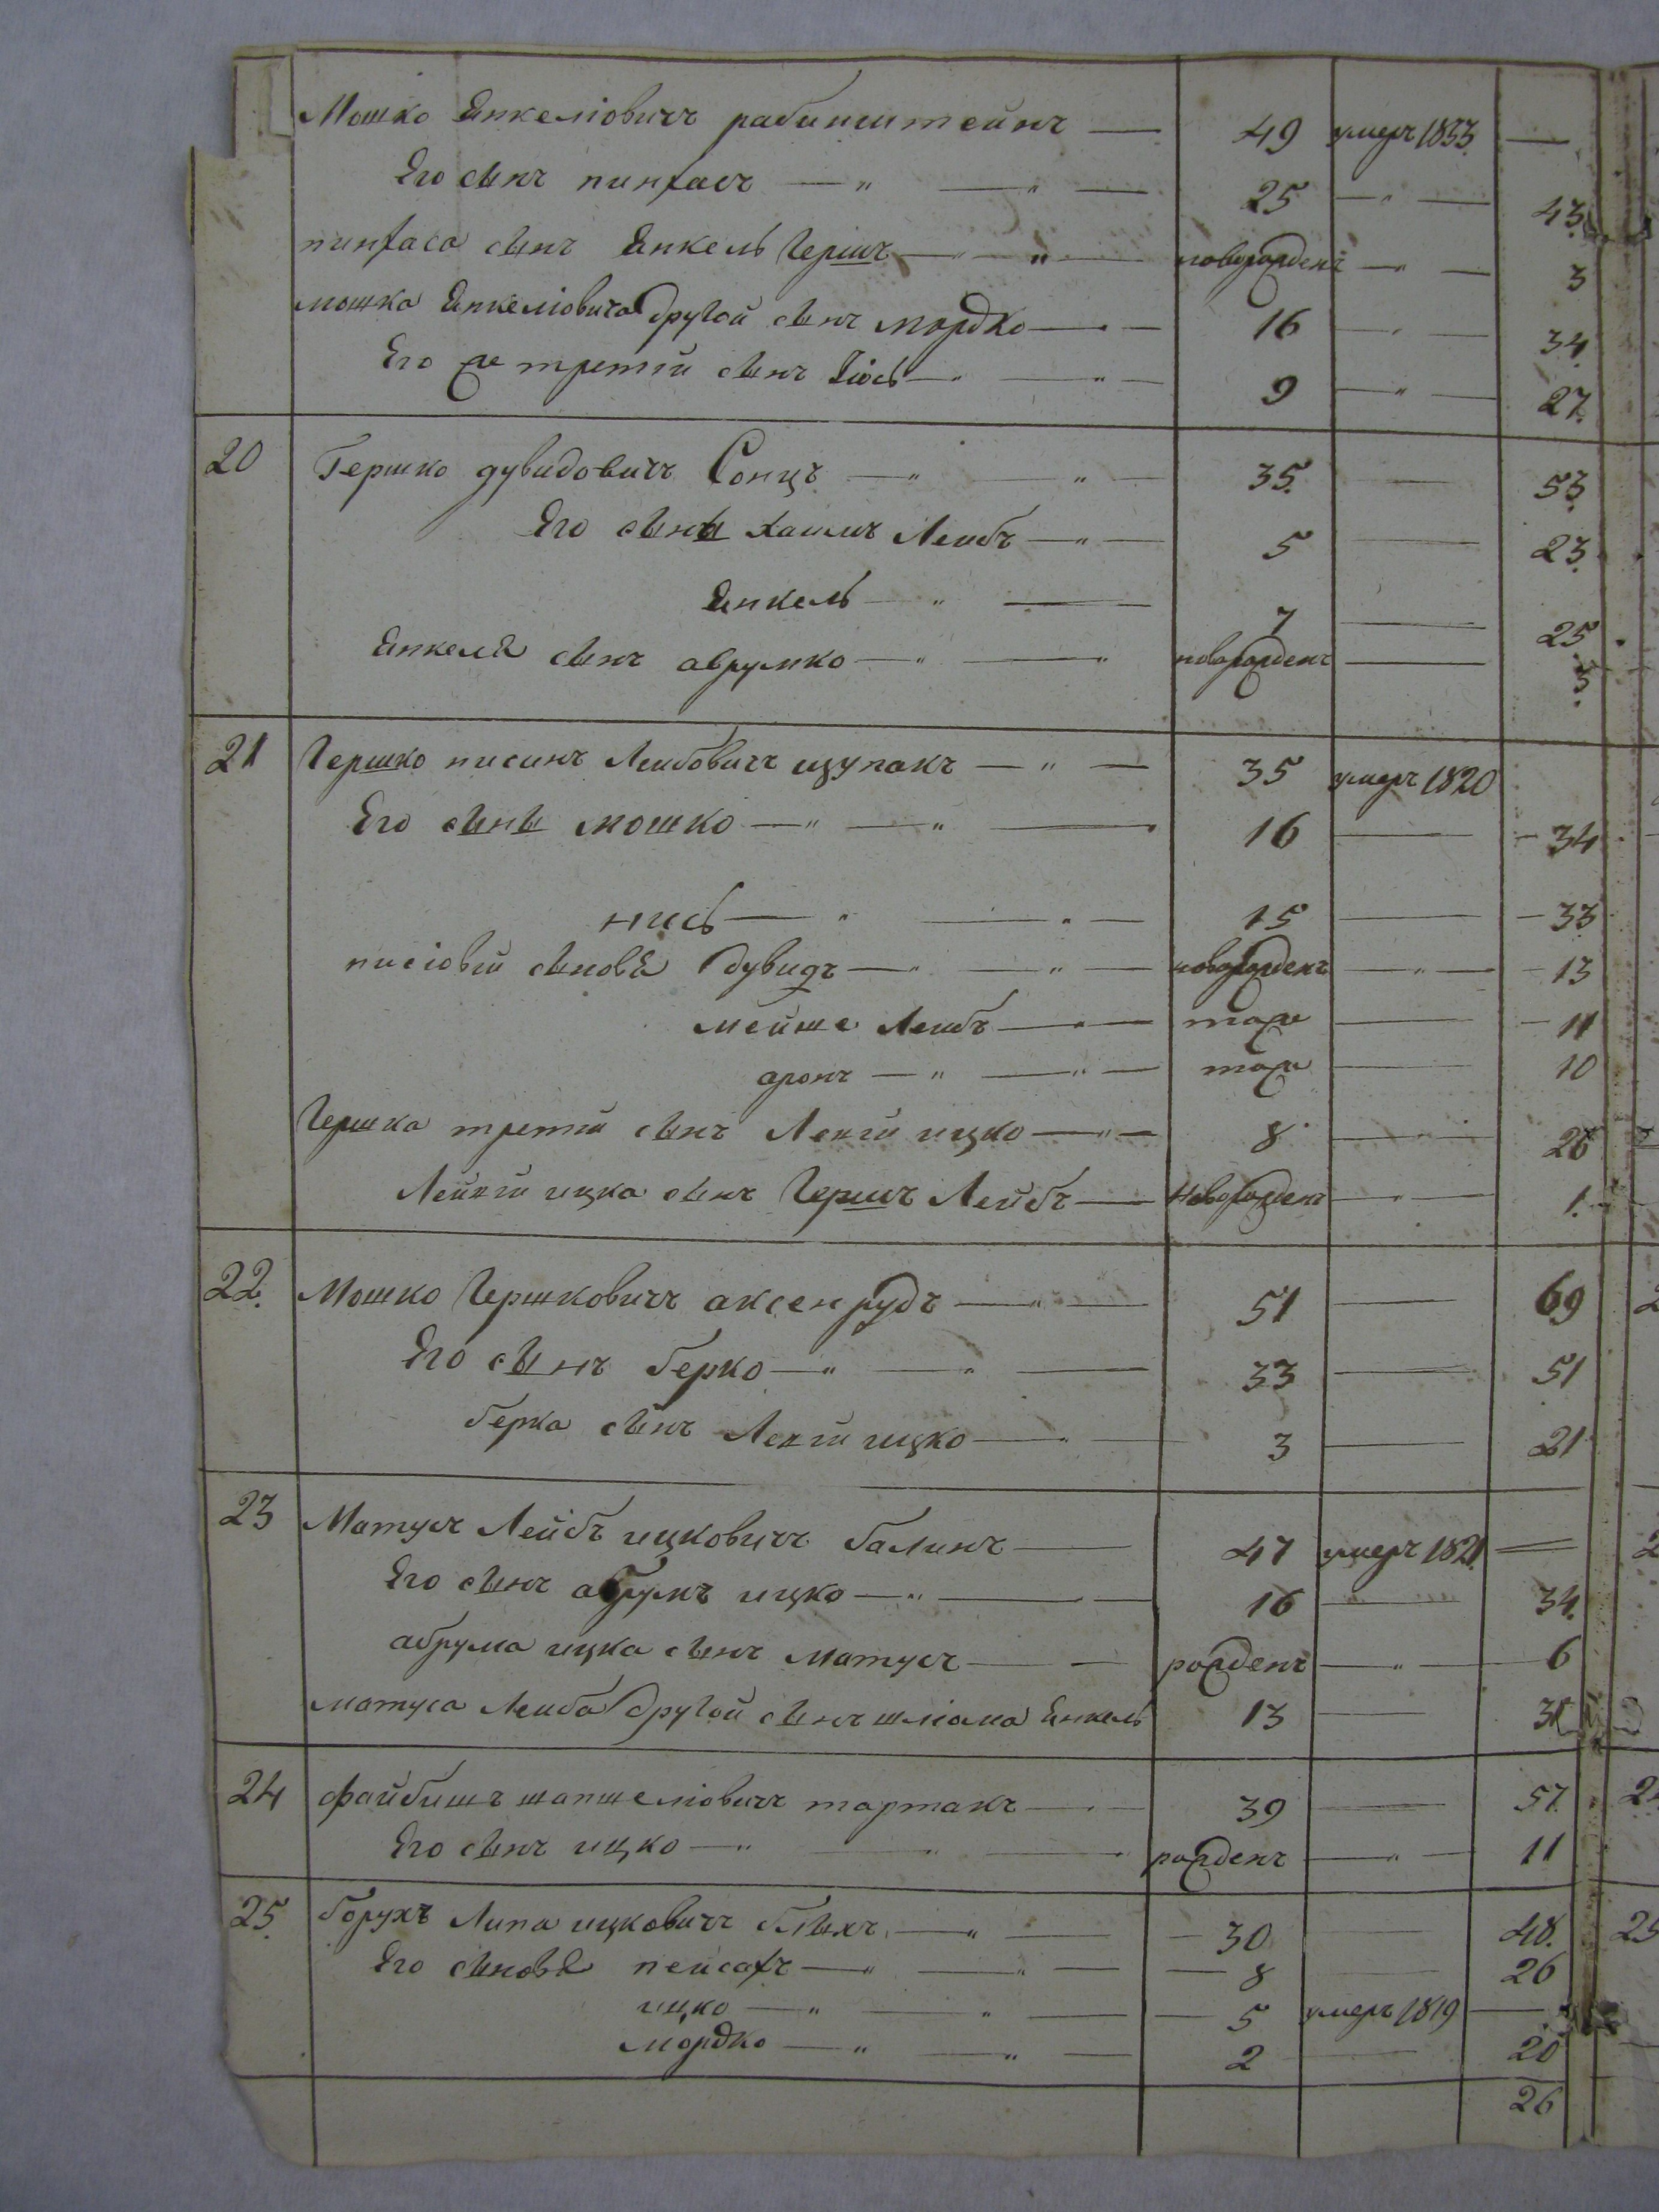 Мошко Янкеліовичъ рабинштейнъ — 49 умеръ 1833 —
Его сынъ пинхасъ — " — " — 25 — " — 43
пинхаса сынъ Янкель Гершъ — " — новорожденъ — " — 3
мошка Янкеліовича другой сынъ мордко — 16 — " — 34
Его же третій сынъ Іось — " — " — 9 — " — 27
20 Гершко дувидовичъ Сонцъ — " — " — 35 — 53
Его сыны хаимъ Леибъ — " — 5 — 23
Янкель — " — 7 — 25
Янкеля сынъ аврумко — " — " новорожденъ — 3
21 Гершко нисинъ Леибовичъ щупакъ — " — 35 умеръ 1820
Его сыны мошко — " — " — 16 — 34
нись — " — " — 15 — 33
нисіовы сыновя дувидъ — " — " — новорожденъ — " — 13
мейше Леибъ — " — тоже — 11
аронъ — " — " — тоже — 10
Гершка третій сынъ Лейзи ицко — " — 8 — 26
Лейзи ицка сынъ Гершъ Лейбъ — новорожденъ — " — 1
22 Мошко Гершковичъ аксенрудъ — " — 51 — 69
Его сынъ берко — " — " — 33 — 51
берка сынъ Лейзи ицко — " — 3 — 21
23 Матусъ Лейбъ ицковичъ балинъ — 47 умеръ 1821 —
Его сынъ абрумъ ицко — " — 16 — 34
абрума ицка сынъ матусъ — рожденъ — " — 6
матуса Леиба другой сынъ шліома Янкель 13 — 31
24 файбишъ шапшеліовичъ тартакъ — " — 39 — 57
Его сынъ ицко — " — " — рожденъ — " — 11
25 борухъ Липа ицковичъ — " — 30 — 48
Его сыновя пейсахъ — " — " — 8 — 26
ицко — " — " — 5 умеръ 1819 —
мордко — " — " — 2 — 20
26